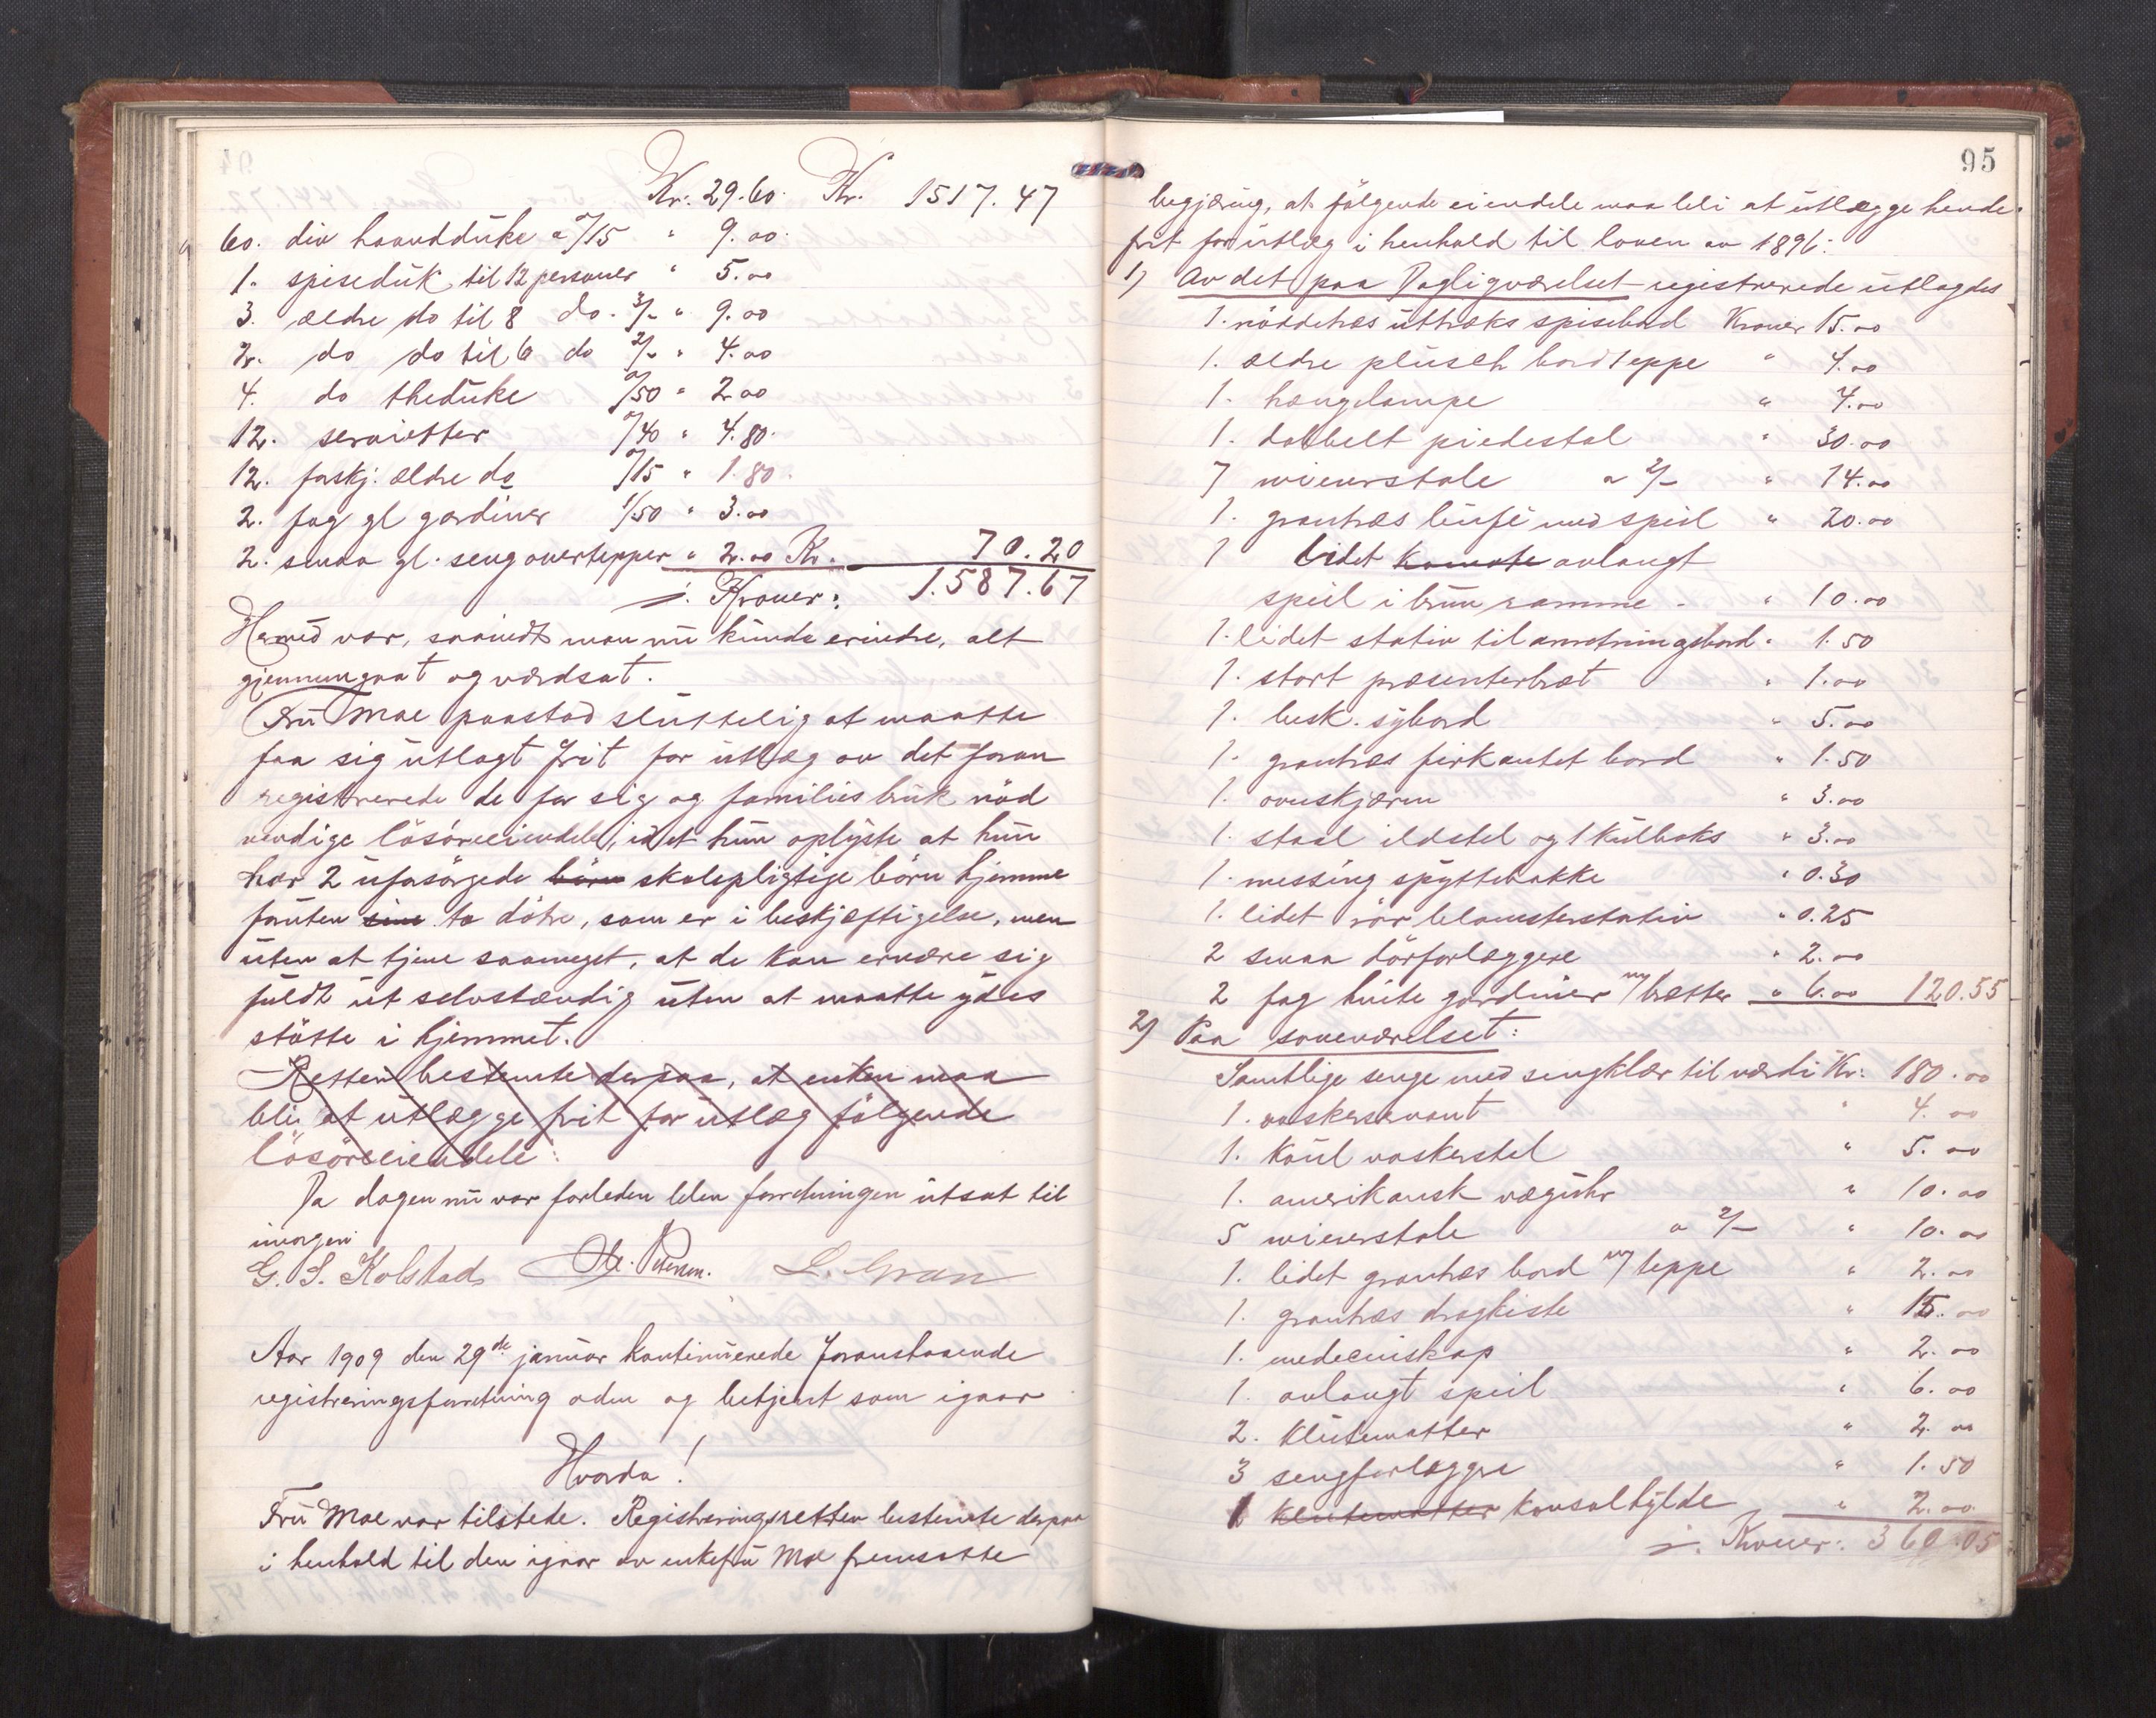 Kr. 29.60. Kr. 1517.47
60. div haandduke a 0/15 " 9.00
1. spiseduk til 12 personer " 5.00
3. ældre do til 8 do. 3/- " 9.00
2. do do til 6 do 2/- " 4.00
4. do theduke 0/50 " 2.00
12. servietter 0/40 " 4.80.
12. forskj. ældre do 0/15 " 1.80.
2. fag gl gardiner 1/50 " 3.00
2. smaa gl. sengovertepper " 2.00 Kr. 70.20
Kroner: 1.587.67
Hermed var, saavidt man nu kunde erindre, alt
gjennemgaat og værdsat.
Fru Moe paastod sluttelig at maatte
faa sig utlagt frit for utlæg av det foran
registrerede de for sig og families bruk nød
vendige løsøreeiendele, idet hun oplyste at hun
har 2 uforsørgede børn skolepligtige børn hjemme
foruten sine to døtre, som er i beskjæftigelse, men
uten at tjene saameget, at de kan ernære sig
fuldt ut selvstændig uten at maatte ydes
støtte i hjemmet.
Retten bestemte derpaa, at enken maa
bli at utlægge frit for utlæg følgende
løsøreeiendele:
Da dagen nu var forleden blev forretningen utsat til
imorgen.
G. S. Kolstad Petersen. L. Gran
Aar 1909 den 29de januar kontinuerede foranstaaende
registreringsforretning aden og betjent som igaar
Hvorda!
Fru Moe var tilstede. Registreringsretten bestemte derpaa
i henhold til den igaar av enkefru Moe fremsatte
95
begjæring, at følgende eiendele maa bli at utlægge hende
frit for utlæg i henhold til loven av 1896:
1) Av det paa Dagligværelset registrerede utlagdes
1. nøddetræs uttræks spisebord Kroner 15.00
1. ældre plusch bordteppe " 4.00
1. hængelampe " 4.00
1. dobbelt piedestal " 30.00
7 wienerstole a 2/- " 14.00
1. grantræs bufé med speil " 20.00
1 lidet komode avlangt
speil i brun ramme - " 10.00
1. lidet stativ til anretningsbord " 1.50
1. stort præsenterbræt " 1.00
1. besk. sybord " 5.00
1. grantræs firkantet bord " 1.50
1. ovnskjærm " 3.00
1. staal ildstel og 1 kulboks " 3.00
1. messing spyttebakke " 0.30
1. lidet rør blomsterstativ " 0.25
2 smaa dørforlæggere " 2.00
2 fag hvite gardiner m/ brætter " 6.00 120.55
2) Paa soveværelset:
Samtlige senge med sengklær til værdi Kr: 180.00
1. vaskeservant " 4.00
1. koul vaskerstel " 5.00
1. amerikansk væguhr " 10.00
5 wienerstole a 2/- " 10.00
1. lidet grantræs bord m/ teppe " 2.00
1. grantræs dragkiste " 15.00
1. medecinskap " 2.00
1. avlangt speil " 6.00
2. klutematter " 2.00
3 sengforlæggre " 1.50
1 klutematter konsolhylde " 2.00
Kroner: 360.05